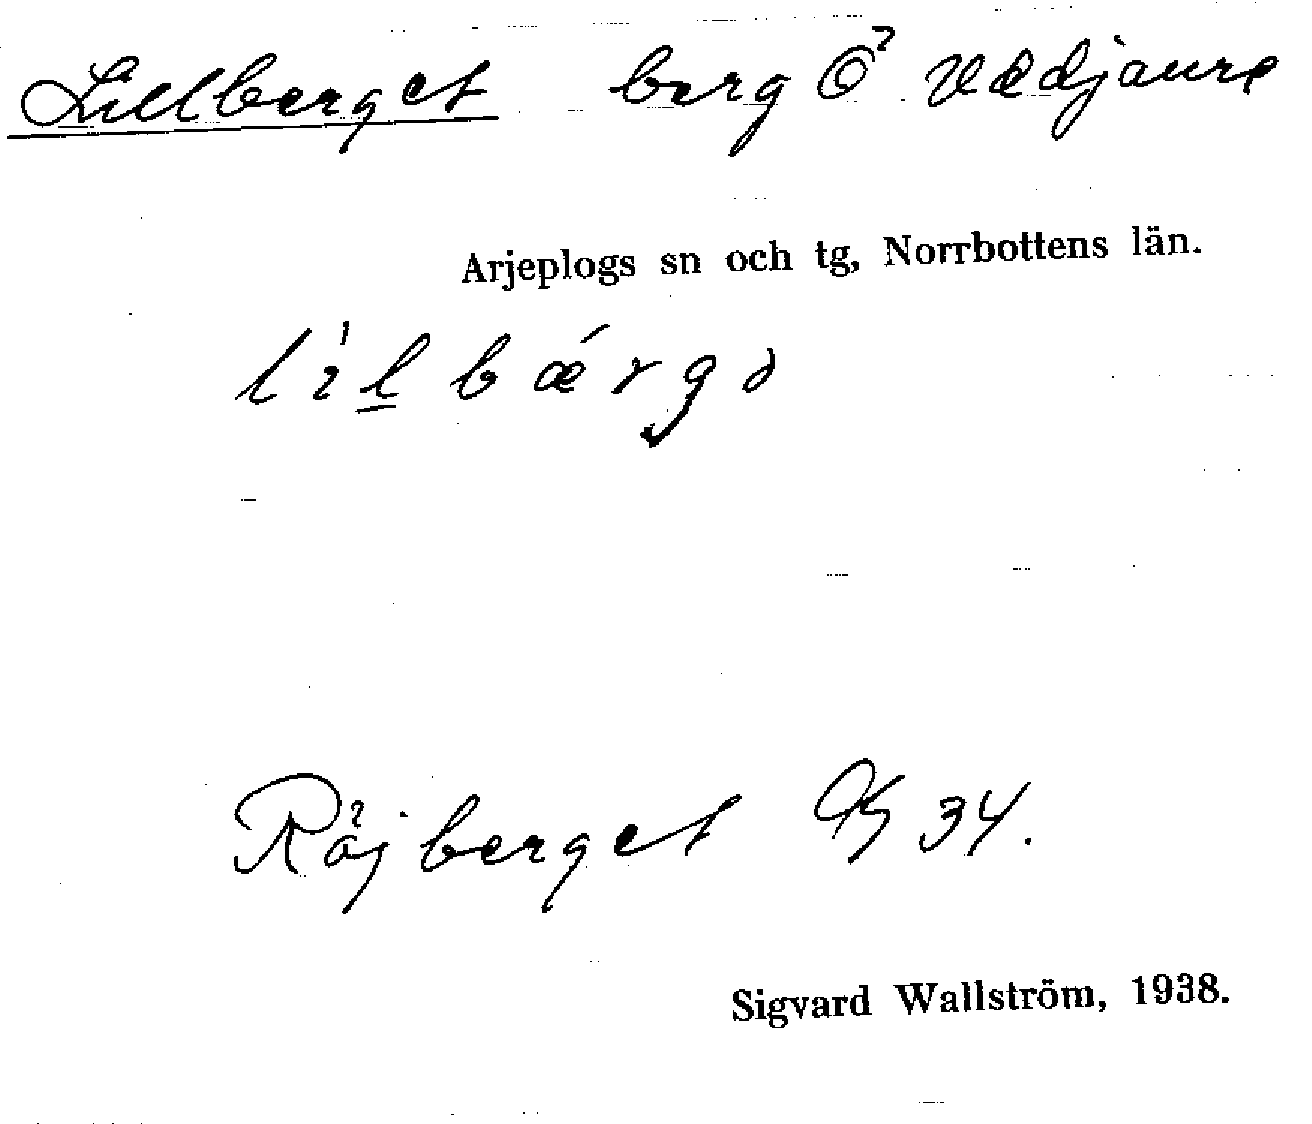 Lillberget berg Ö Vedjaure
Arjeplogs sn och tg, Norrbottens län.
lìlbǽrgə
Röjberget GS 34.
Sigvard Wallström, 1938.